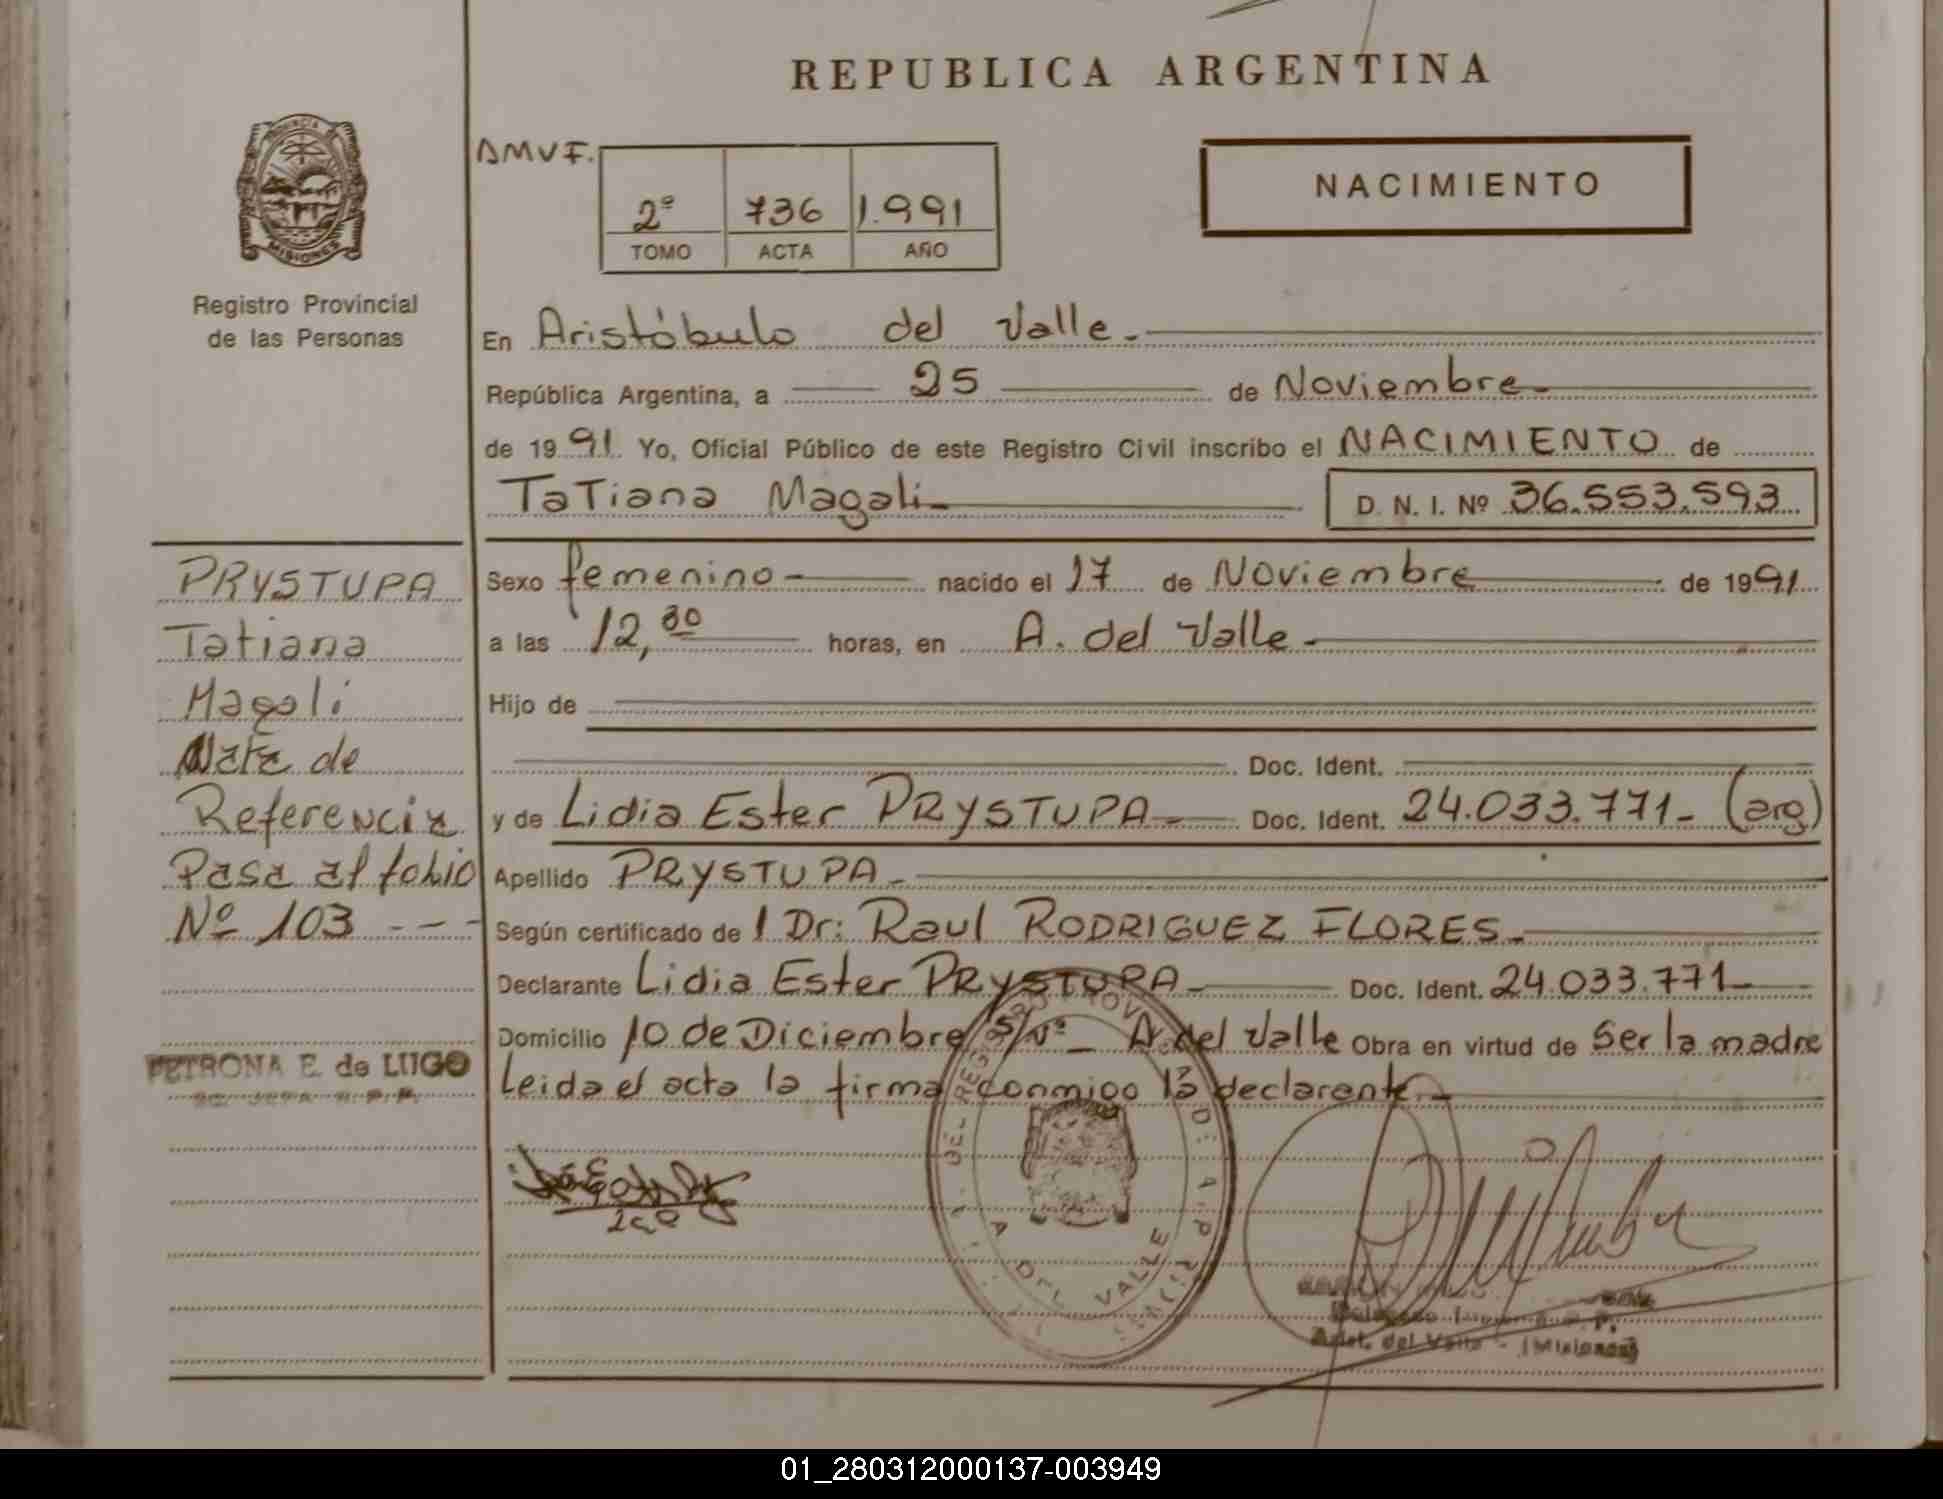 REPUBLICA ARGENTINA
PROVINCIA
MISIONES
Registro Provincial
de las Personas
DMVF.
2º 736 1.991
TOMO ACTA AÑO
NACIMIENTO
En Aristóbulo del Valle.-
República Argentina, a 25 de Noviembre-
de 1991. Yo, Oficial Público de este Registro Civil inscribo el NACIMIENTO de
Tatiana Magali- D. N. I. Nº 36.553.593
Sexo femenino- nacido el 17 de Noviembre de 1991
a las 12,30 horas, en A. del Valle-
Hijo de
Doc. Ident.
y de Lidia Ester PRYSTUPA- Doc. Ident. 24.033.771- (arg)
Apellido PRYSTUPA-
Según certificado de 1 Dr: Raul RODRIGUEZ FLORES-
Declarante Lidia Ester PRYSTUPA- Doc. Ident. 24.033.771-
Domicilio 10 de Diciembre S/Nº- A. del Valle Obra en virtud de Ser la madre
Leida el acta la firma conmigo la declarante-
PRYSTUPA
Tatiana
Magali
Nota de
Referencia
Pasa al folio
Nº 103 - - -
PETRONA E. de LUGO
DEL VALLE
Arist. del Valle - (Misiones)
01_280312000137-003949